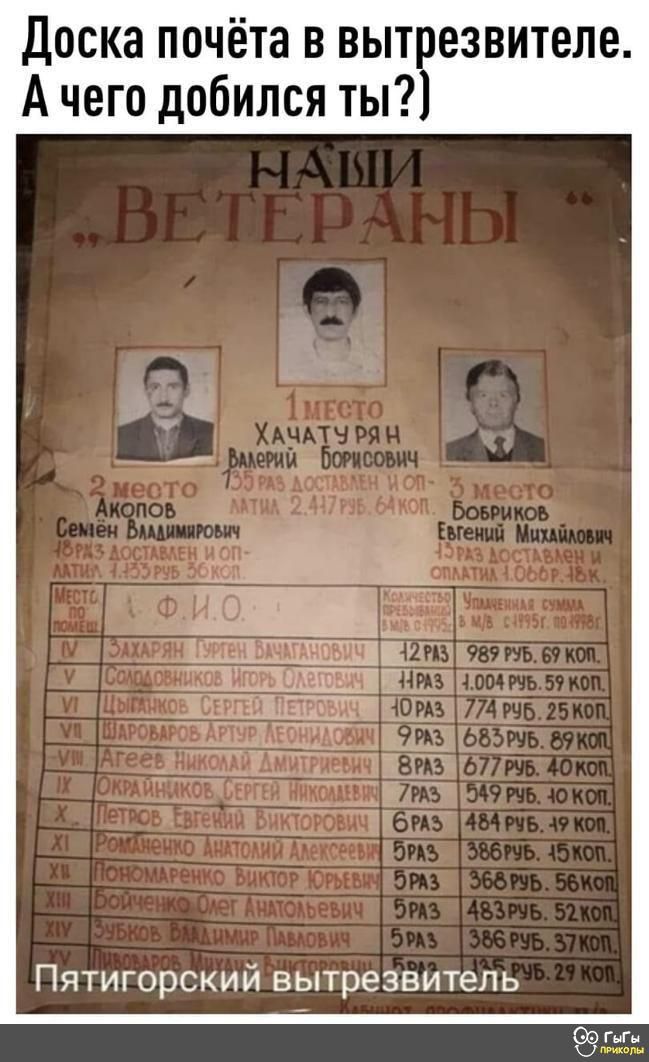 Доска почёта в вытрезвителе.
А чего добился ты?)
НАШИ
„ВЕТЕРАНЫ“
1 МЕСТО
ХАЧАТУРЯН
ВАЛЕРИЙ БОРИСОВИЧ
135 РАЗ ДОСТАВЛЕН И ОП-
ЛАТИЛ 2.417 РУБ. 64 КОП.
2 МЕСТО
АКОПОВ
СЕМЁН ВЛАДИМИРОВИЧ
18 РАЗ ДОСТАВЛЕН И ОП-
ЛАТИЛ 1.133 РУБ 36 КОП.
3 МЕСТО
БОБРИКОВ
ЕВГЕНИЙ МИХАЙЛОВИЧ
13 РАЗ ДОСТАВЛЕН И
ОПЛАТИЛ 1.066 Р. 18 К.
МЕСТО ПО ПОМЕЩ. Ф.И.О. КОЛИЧЕСТВО ПРЕБЫВАНИЙ В М/В С 1995г. УПЛАЧЕННАЯ СУММА В М/В С 1995г. ПО 1998г.
IV ЗАХАРЯН ГУРГЕН ВАЧАГАНОВИЧ 12 РАЗ 989 РУБ. 69 КОП.
V СОЛОДОВНИКОВ ИГОРЬ ОЛЕГОВИЧ 11 РАЗ 1.004 РУБ. 59 КОП.
VI ЦЫГАНКОВ СЕРГЕЙ ПЕТРОВИЧ 10 РАЗ 774 РУБ. 25 КОП.
VII ШАРОВАРОВ АРТУР ЛЕОНИДОВИЧ 9 РАЗ 683 РУБ. 89 КОП.
VIII АГЕЕВ НИКОЛАЙ ДМИТРИЕВИЧ 8 РАЗ 677 РУБ. 40 КОП.
IX ОКРАЙНИКОВ СЕРГЕЙ НИКОЛАЕВИЧ 7 РАЗ 549 РУБ. 10 КОП.
X. ПЕТРОВ ЕВГЕНИЙ ВИКТОРОВИЧ 6 РАЗ 484 РУБ. 19 КОП.
XI РОМАНЕНКО АНАТОЛИЙ АЛЕКСЕЕВИЧ 5 РАЗ 386 РУБ. 15 КОП.
XII ПОНОМАРЕНКО ВИКТОР ЮРЬЕВИЧ 5 РАЗ 368 РУБ. 56 КОП
XIII БОЙЧЕНКО ОЛЕГ АНАТОЛЬЕВИЧ 5 РАЗ 483 РУБ. 52 КОП.
XIV ЗУБКОВ ВЛАДИМИР ПАВЛОВИЧ 5 РАЗ 386 РУБ. 37 КОП.
XV ПИВОВАРОВ МИХАИЛ ВИКТОРОВИЧ 5 РАЗ РУБ. 29 КОП.
Пятигорский вытрезвитель
ГыГы
ПРИКОЛЫ